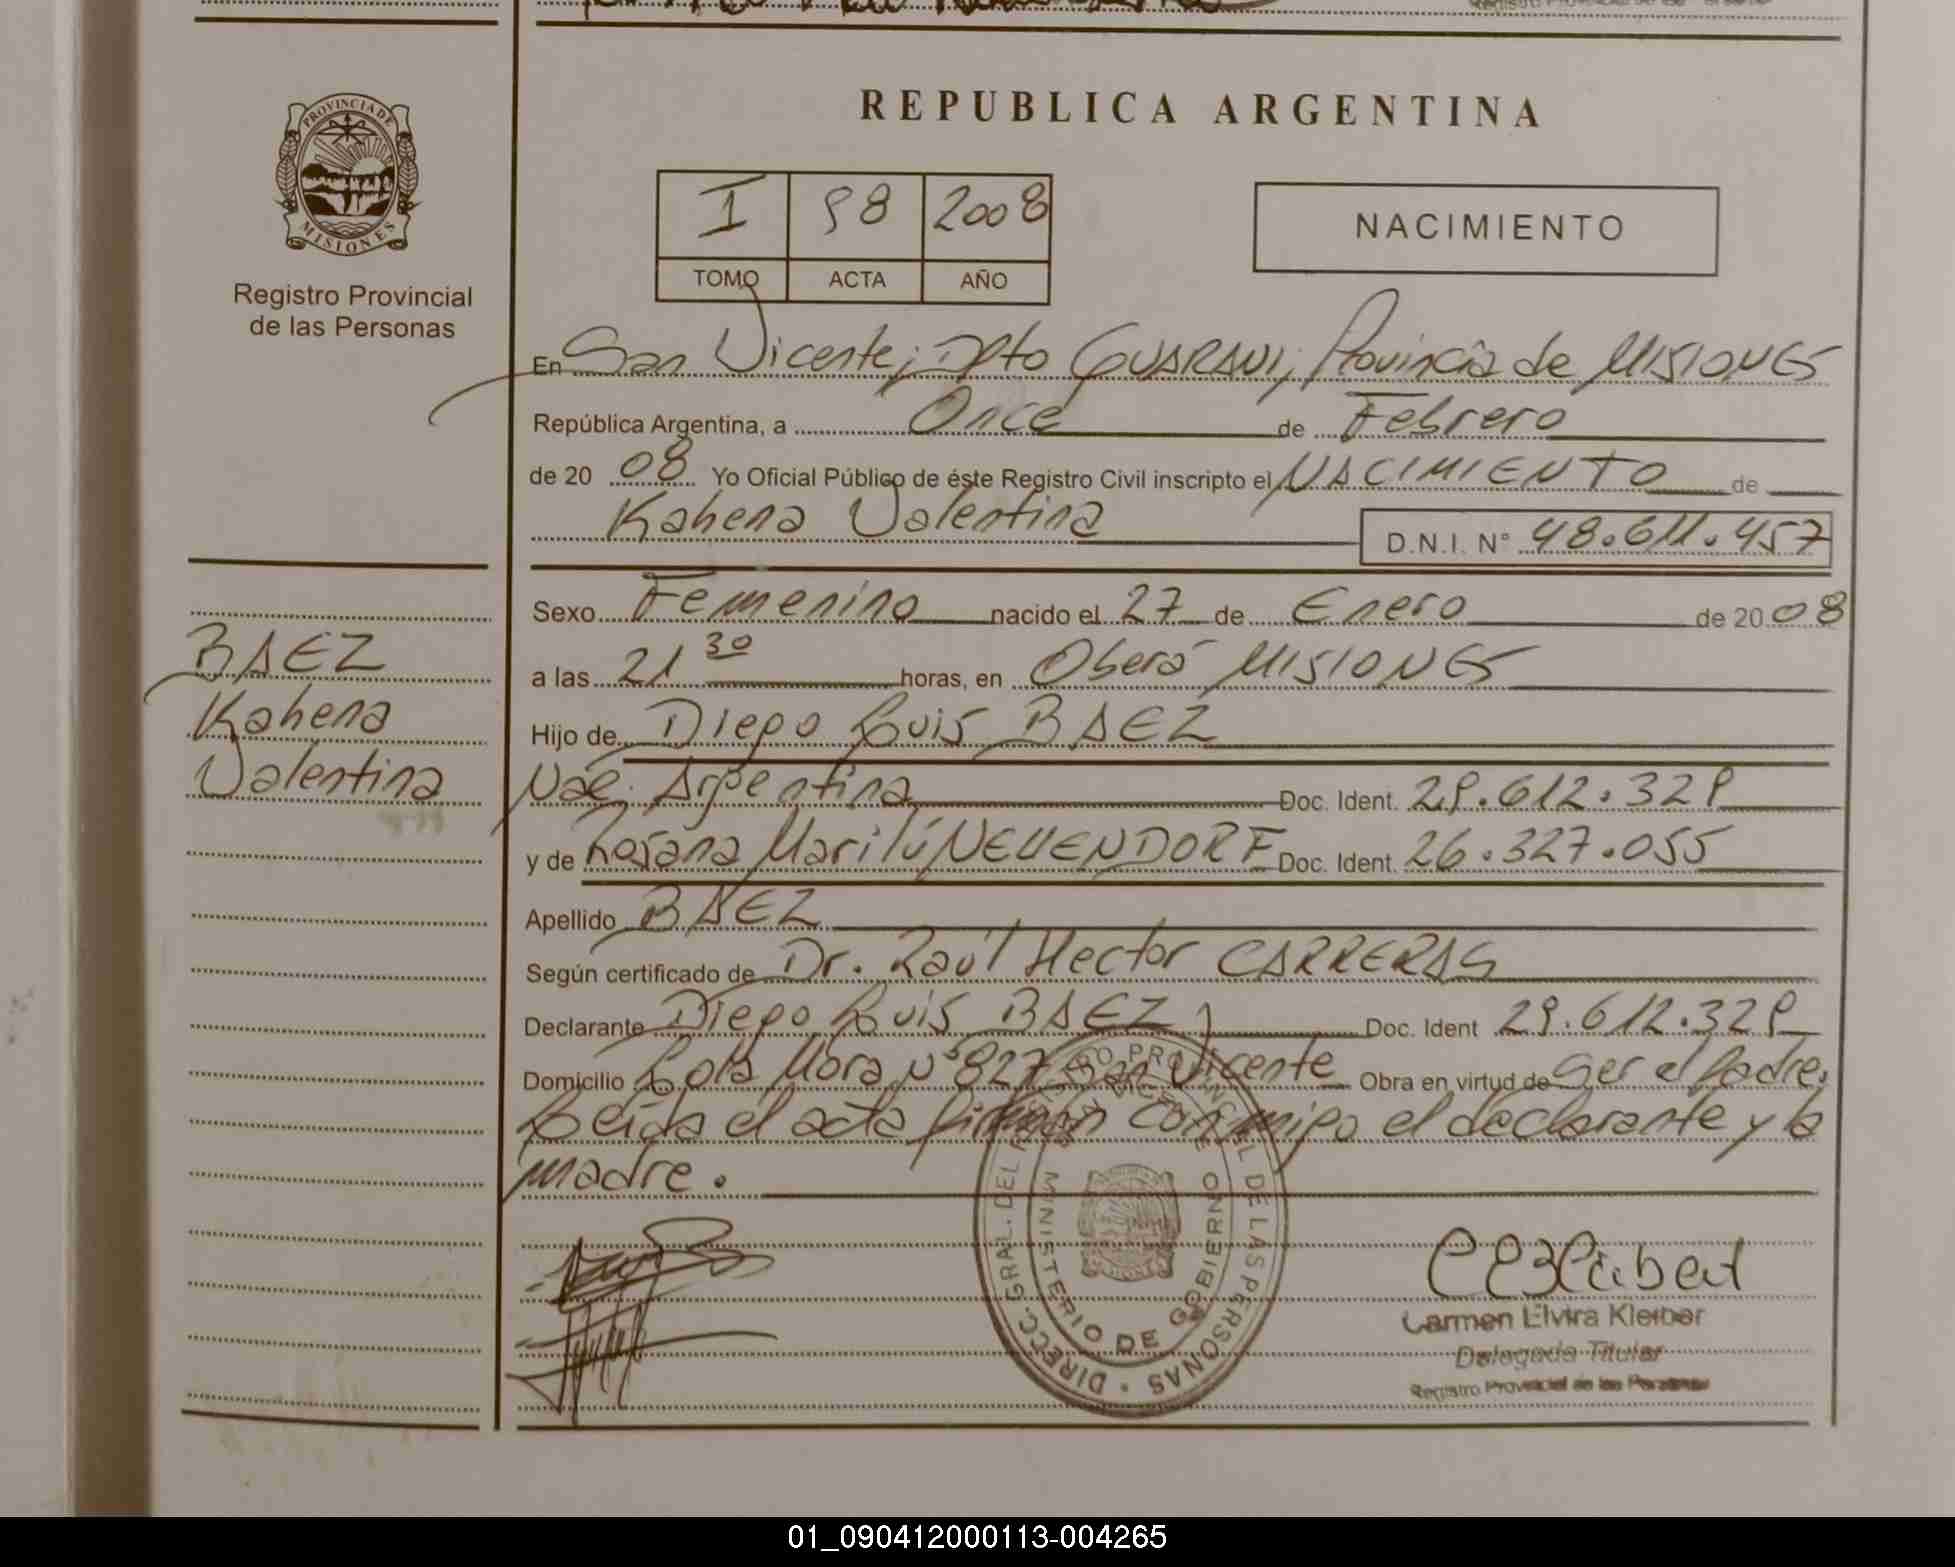 PROVINCIA DE
MISIONES
Registro Provincial
de las Personas
REPUBLICA ARGENTINA
I 98 2008
TOMO ACTA AÑO
NACIMIENTO
En San Vicente, Dpto GUARANI, Provincia de MISIONES
República Argentina, a Once de Febrero
de 20 08 Yo Oficial Público de éste Registro Civil inscripto el NACIMIENTO de
Kahena Valentina D.N.I. N° 48.611.457
BAEZ
Kahena
Valentina
Sexo Femenino nacido el 27 de Enero de 20 08
a las 21 30 horas, en Oberá MISIONES
Hijo de Diego Luis BAEZ
Nac. Argentina Doc. Ident. 29.612.329
y de Rosana Marilú NEUENDORF Doc. Ident. 26.327.055
Apellido BAEZ
Según certificado de Dr. Raúl Hector CARRERAS
Declarante Diego Luis BAEZ Doc. Ident 29.612.329
Domicilio Lola Mora N° 827 San Vicente Obra en virtud de Ser el Padre.
Leída el acta firman conmigo el declarante y la
madre.
DIRECC. GRAL. DEL REGISTRO PROVINCIAL DE LAS PERSONAS
MINISTERIO DE GOBIERNO
Carmen Elvira Kleiber
Delegada Titular
Registro Provincial de las Personas
01_090412000113-004265